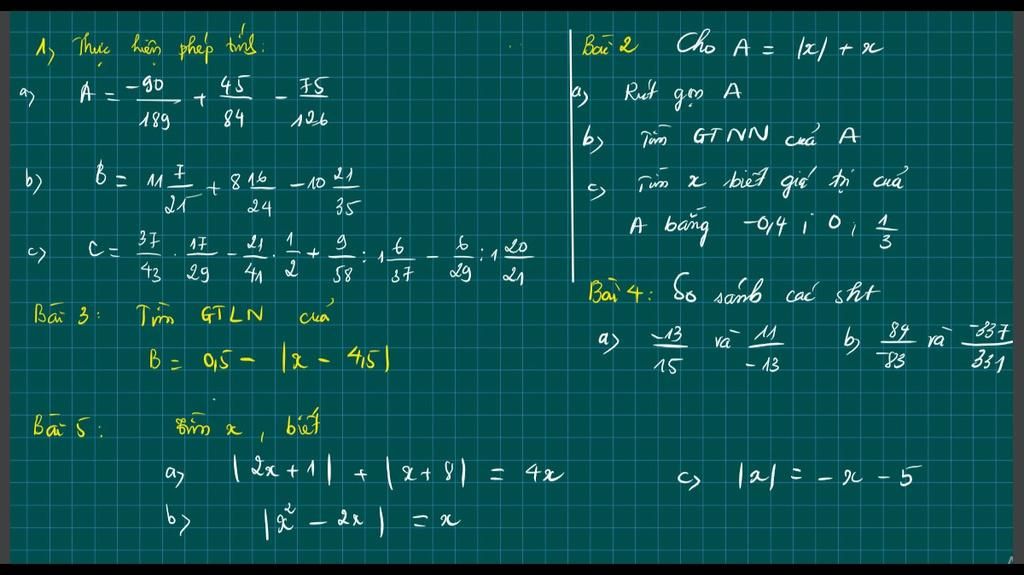 1, Thực hiện phép tính:
a) A = \frac{-90}{189} + \frac{45}{84} - \frac{75}{126}
b) B = 11\frac{7}{25} + 8\frac{16}{24} - 10\frac{21}{35}
c) C = \frac{37}{43} . \frac{17}{29} - \frac{21}{41} . \frac{1}{2} + \frac{9}{58} : 1\frac{6}{37} - \frac{6}{29} : 1\frac{20}{21}
Bài 2 Cho A = |x| + x
a) Rút gọn A
b) Tìm GTNN của A
c) Tìm x biết giá trị của
A bằng -0,4 ; 0 ; \frac{1}{3}
Bài 3: Tìm GTLN của
B = 0,5 - |x - 4,5|
Bài 4: So sánh các sht
a) \frac{-13}{15} và \frac{11}{-13} b) \frac{84}{-83} và \frac{-337}{331}
Bài 5: Tìm x, biết
a) |2x + 1| + |x + 8| = 4x
b) |x² - 2x| = x
c) |x| = - x - 5